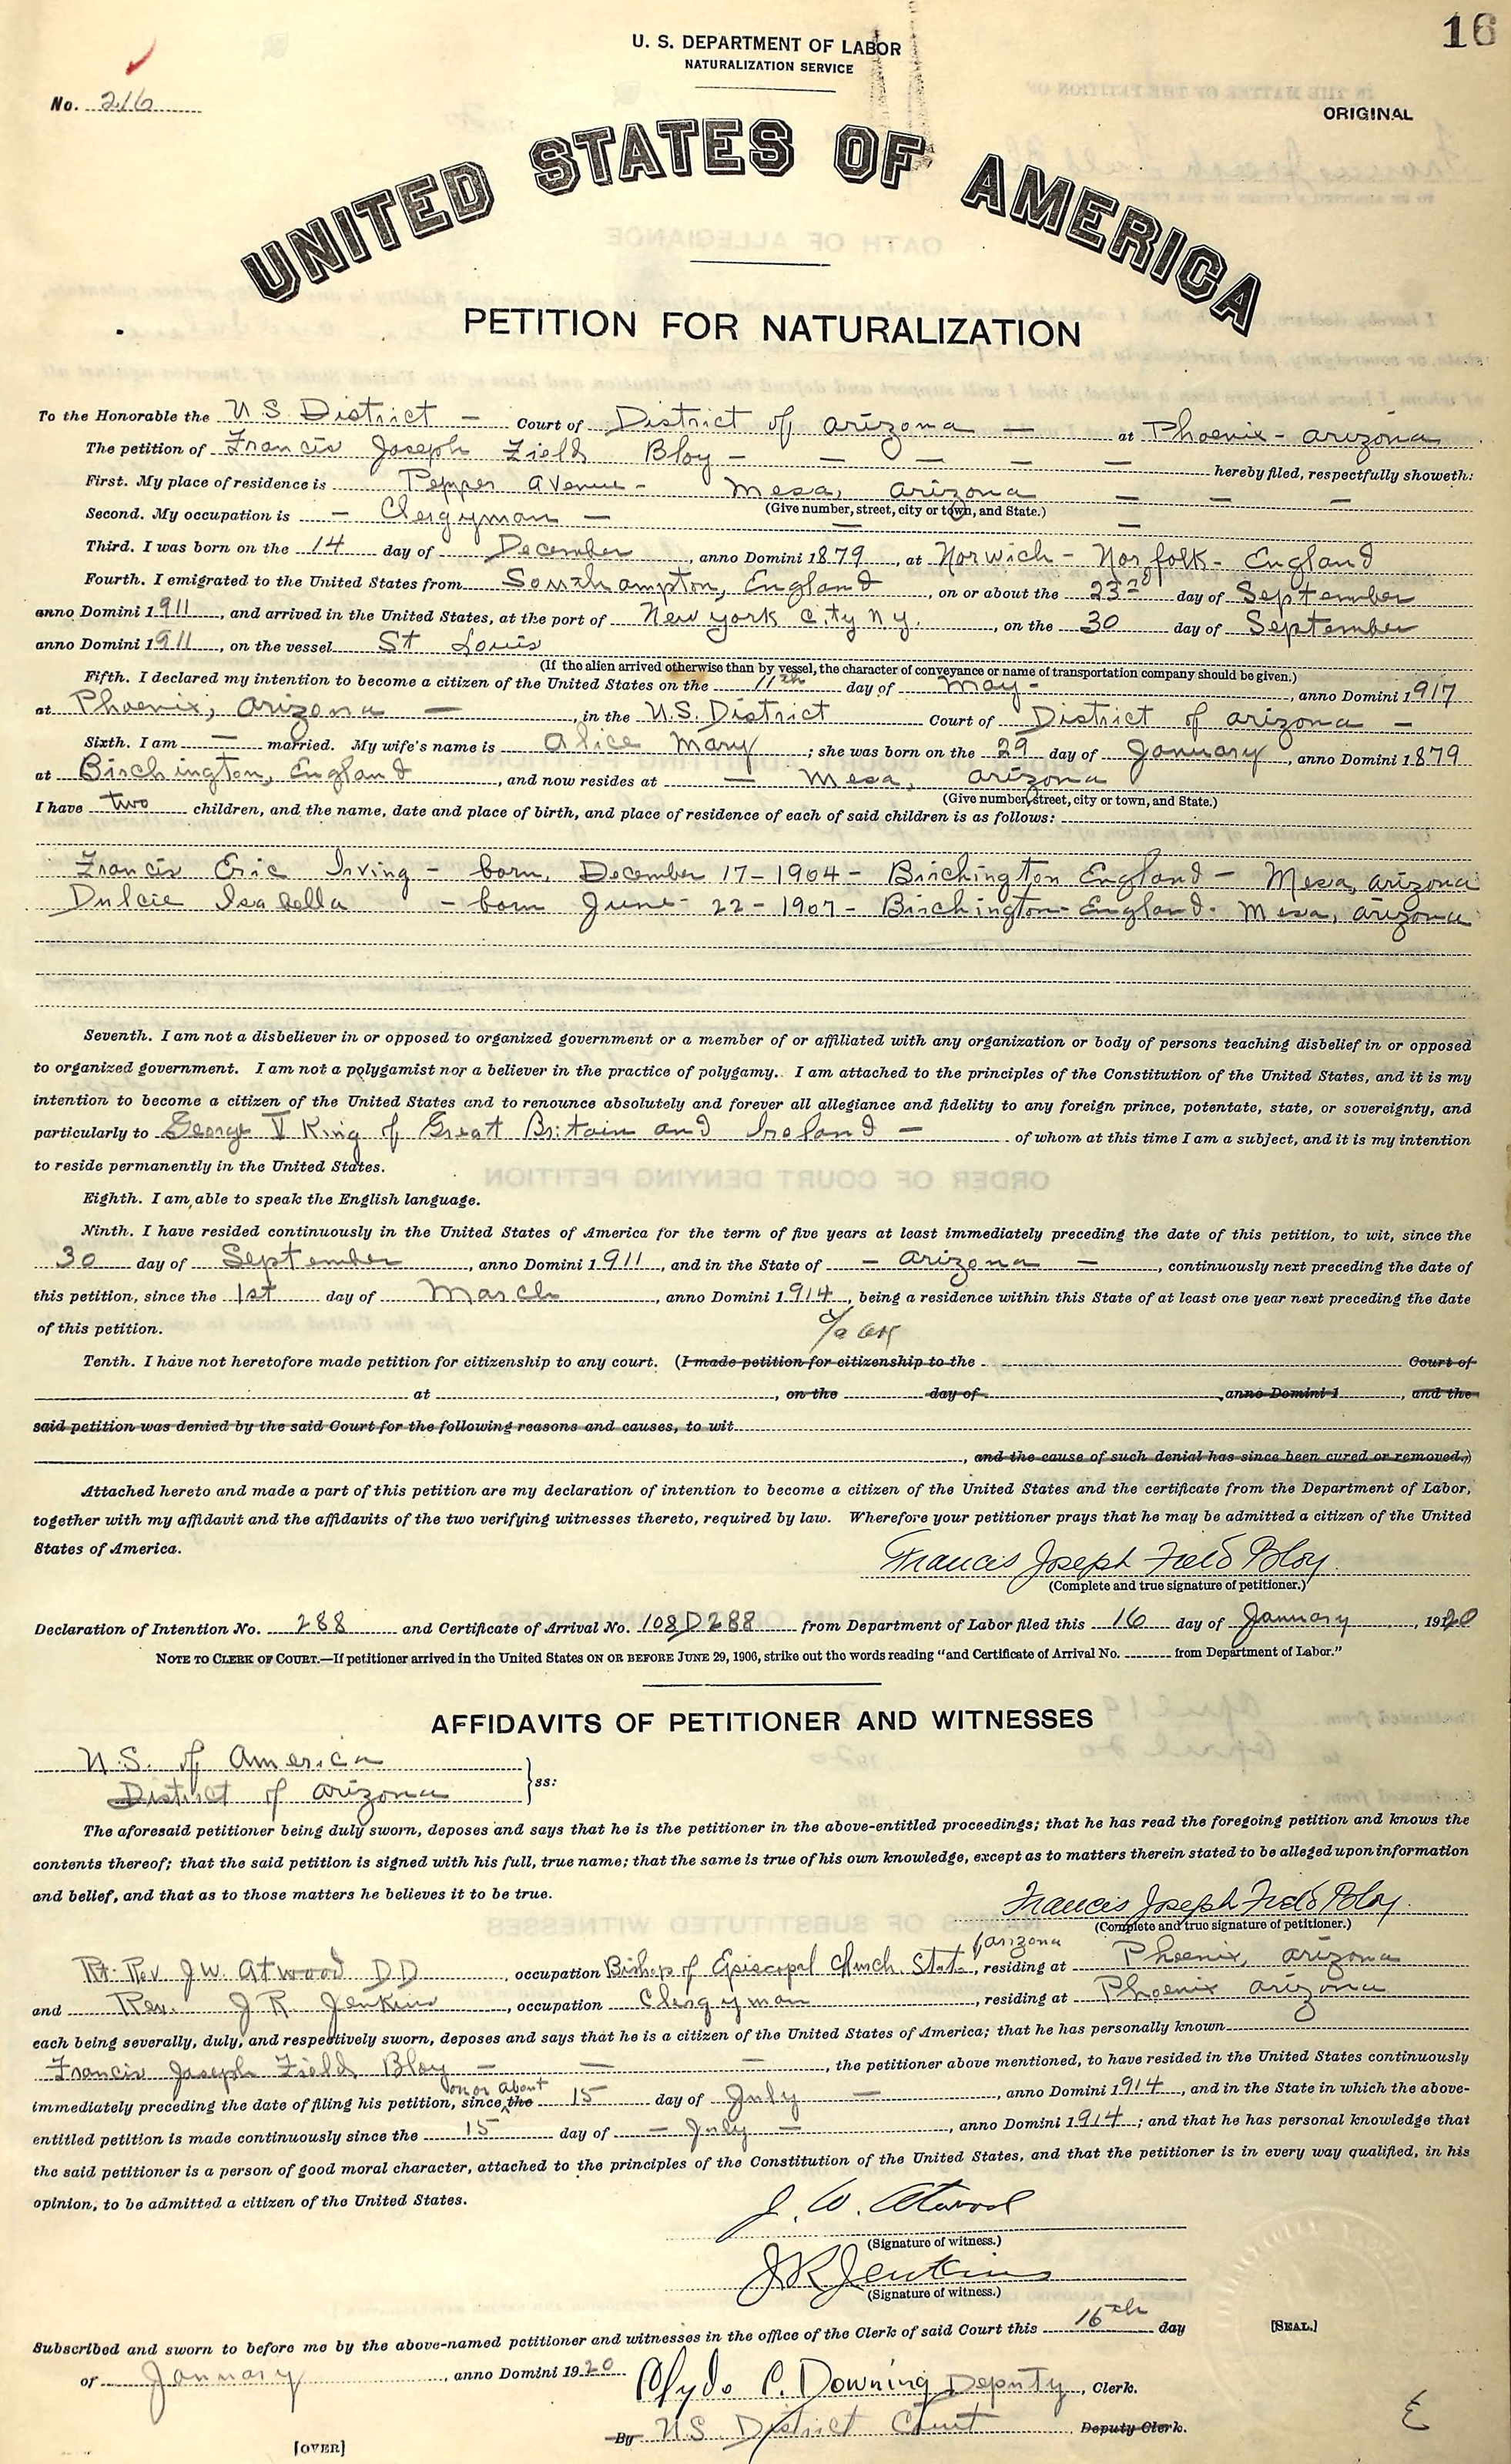 16
U. S. DEPARTMENT OF LABOR
NATURALIZATION SERVICE
No. 216
ORIGINAL
UNITED STATES OF AMERICA
PETITION FOR NATURALIZATION
To the Honorable the U.S District — Court of District of Arizona — at Phoenix - Arizona
The petition of Francis Joseph Field Bloy — — — — — hereby filed, respectfully showeth:
First. My place of residence is Pepper Avenue - Mesa, Arizona — — —
(Give number, street, city or town, and State.)
Second. My occupation is — Clergyman — — —
Third. I was born on the 14 day of December, anno Domini 1879, at Norwich - Norfolk - England
Fourth. I emigrated to the United States from Southampton, England, on or about the 23rd day of September
anno Domini 1911, and arrived in the United States, at the port of New York City N.Y., on the 30 day of September
anno Domini 1911, on the vessel St Louis
(If the alien arrived otherwise than by vessel, the character of conveyance or name of transportation company should be given.)
Fifth. I declared my intention to become a citizen of the United States on the 11th day of May -, anno Domini 1917
at Phoenix, Arizona —, in the U.S. District Court of District of Arizona —
Sixth. I am — married. My wife's name is Alice Mary; she was born on the 29 day of January, anno Domini 1879
at Birchington, England, and now resides at — Mesa, Arizona
(Give number, street, city or town, and State.)
I have two children, and the name, date and place of birth, and place of residence of each of said children is as follows:
Francis Eric Irving - born, December 17 - 1904 - Birchington England - Mesa, Arizona
Dulcie Isabella - born June - 22 - 1907 - Birchington - England - Mesa, Arizona
Seventh. I am not a disbeliever in or opposed to organized government or a member of or affiliated with any organization or body of persons teaching disbelief in or opposed
to organized government. I am not a polygamist nor a believer in the practice of polygamy. I am attached to the principles of the Constitution of the United States, and it is my
intention to become a citizen of the United States and to renounce absolutely and forever all allegiance and fidelity to any foreign prince, potentate, state, or sovereignty, and
particularly to George V King of Great Britain and Ireland — of whom at this time I am a subject, and it is my intention
to reside permanently in the United States.
Eighth. I am able to speak the English language.
Ninth. I have resided continuously in the United States of America for the term of five years at least immediately preceding the date of this petition, to wit, since the
30 day of September, anno Domini 1911, and in the State of — Arizona —, continuously next preceding the date of
this petition, since the 1st day of March, anno Domini 1914, being a residence within this State of at least one year next preceding the date
of this petition.
Tenth. I have not heretofore made petition for citizenship to any court. (I made petition for citizenship to the Court of
at , on the day of , anno Domini 1 , and the
said petition was denied by the said Court for the following reasons and causes, to wit
, and the cause of such denial has since been cured or removed.)
Attached hereto and made a part of this petition are my declaration of intention to become a citizen of the United States and the certificate from the Department of Labor,
together with my affidavit and the affidavits of the two verifying witnesses thereto, required by law. Wherefore your petitioner prays that he may be admitted a citizen of the United
States of America.
Francis Joseph Field Bloy
(Complete and true signature of petitioner.)
Declaration of Intention No. 288 and Certificate of Arrival No. 108D288 from Department of Labor filed this 16 day of January, 1920
NOTE TO CLERK OF COURT.—If petitioner arrived in the United States ON OR BEFORE JUNE 29, 1906, strike out the words reading "and Certificate of Arrival No. from Department of Labor."
AFFIDAVITS OF PETITIONER AND WITNESSES
U.S. of America
District of Arizona } ss:
The aforesaid petitioner being duly sworn, deposes and says that he is the petitioner in the above-entitled proceedings; that he has read the foregoing petition and knows the
contents thereof; that the said petition is signed with his full, true name; that the same is true of his own knowledge, except as to matters therein stated to be alleged upon information
and belief, and that as to those matters he believes it to be true.
Francis Joseph Field Bloy
(Complete and true signature of petitioner.)
Rt. Rev. J.W. Atwood DD, occupation Bishop of Episcopal Church State of Arizona, residing at Phoenix, Arizona
and Rev. J. R. Jenkins, occupation Clergyman, residing at Phoenix Arizona
each being severally, duly, and respectively sworn, deposes and says that he is a citizen of the United States of America; that he has personally known
Francis Joseph Field Bloy — — —, the petitioner above mentioned, to have resided in the United States continuously
immediately preceding the date of filing his petition, since on or about the 15 day of July —, anno Domini 1914, and in the State in which the above-
entitled petition is made continuously since the 15 day of — July —, anno Domini 1914; and that he has personal knowledge that
the said petitioner is a person of good moral character, attached to the principles of the Constitution of the United States, and that the petitioner is in every way qualified, in his
opinion, to be admitted a citizen of the United States.
J. W. Atwood
(Signature of witness.)
J R Jenkins
(Signature of witness.)
Subscribed and sworn to before me by the above-named petitioner and witnesses in the office of the Clerk of said Court this 16th day
[SEAL.]
of January, anno Domini 1920 Clyde C. Downing Deputy, Clerk.
By U.S. District Court Deputy Clerk.
[OVER]